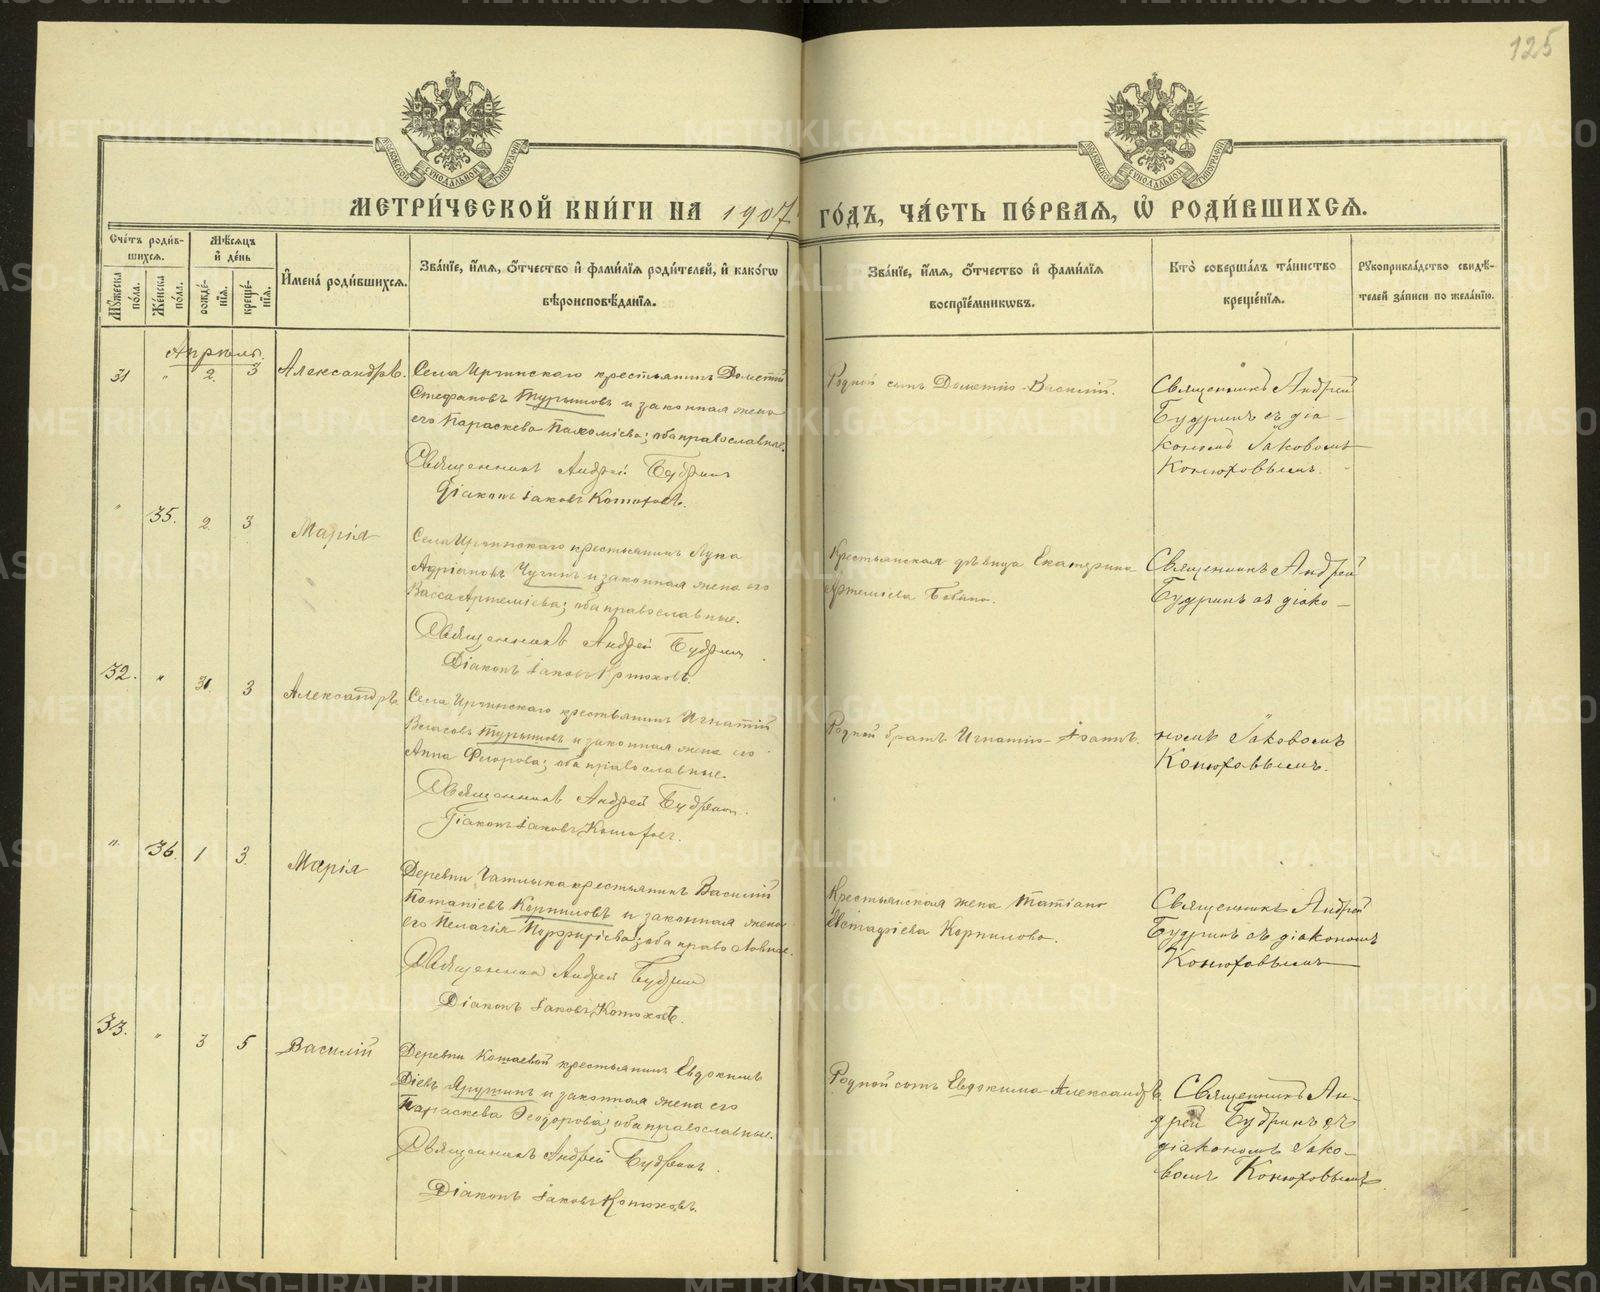 125
МОСКОВСКОЙ СѴНОДАЛЬНОЙ ТИПОГРАФІИ
МОСКОВСКОЙ СѴНОДАЛЬНОЙ ТИПОГРАФІИ
МЕТРИ́ЧЕСКОЙ КНИ́ГИ НА 1907 ГО́ДЪ, ЧА́СТЬ ПЕ́РВАЯ, Ѡ҆ РОДИ́ВШИХСЯ.
Сче́тъ роди́в-
шихся.
Мꙋжеска по́ла.
Же́нска по́ла.
Мѣ́сяцъ
и҆ де́нь
рожде́-
нїя.
креще́-
нїя.
И҆мена̀ роди́вшихся.
Зва́нїе, и҆́мя, ѻ҆́тчество и҆ фами́лїя роди́телей, и҆ како́гѡ
вѣроисповѣ́данїя.
Зва́нїе, и҆́мя, ѻ҆́тчество и҆ фами́лїя
воспрїе́мникѡвъ.
Кто̀ соверша́лъ та́инство
креще́нїя.
Рꙋкоприкла́дство свидѣ́-
телей за́писи по жела́нїю.
Апрѣль.
31 " 2. 3 Александръ.
Села Иргинскаго крестьянинъ Дометій
Стефановъ Турышовъ и законная жена
его Параскева Пахомiева; оба православные.
Священникъ Андрей Будринъ
Діаконъ Іаковъ Конюховъ.
Родной сынъ Дометію - Василій.
Священникъ Андрей
Будринъ съ діа-
кономъ Іаковомъ
Конюховымъ.
" 35. 2. 3 Марія
Села Иргинскаго крестьянинъ Лука
Адріановъ Чугинъ и законная жена его
Васса Артеміева; оба православные.
Священникъ Андрей Будринъ
Діаконъ Іаковъ Конюховъ.
Крестьянская дѣвица Екатерина
Артеміева
Священникъ Андрей
Будринъ съ діако-
32. " 31. 3 Александръ
Села Иргинскаго крестьянинъ Игнатій
Власовъ Турышовъ и законная жена его
Анна Флорова; оба православные.
Священникъ Андрей Будринъ.
Діаконъ Іаковъ Конюховъ.
Родной братъ Игнатію - Іоаннъ.
номъ Іаковомъ
Конюховымъ.
" 36. 1 3. Марія
Деревни Чатлыка крестьянинъ Василій
Потапіевъ Корниловъ и законная жена
его Пелагія Порфиріева; оба
Священникъ Андрей Будринъ
Діаконъ Іаковъ Конюховъ.
Крестьянская жена Татіана
Евстафіева Корнилова.
Священникъ Андрей
Будринъ съ діакономъ
Конюховымъ
33. " 3 5 Василій
Деревни крестьянинъ Евдокимъ
Діевъ Яругинъ и законная жена его
Параскева Ѳеодорова; оба православные.
Священникъ Андрей Будринъ.
Діаконъ Іаковъ Конюховъ.
Родной сынъ Евдокима - Александръ
Священникъ Ан-
дрей Будринъ съ
діакономъ Іако-
вомъ Конюховымъ.
METRIKI.GASO-URAL.RU